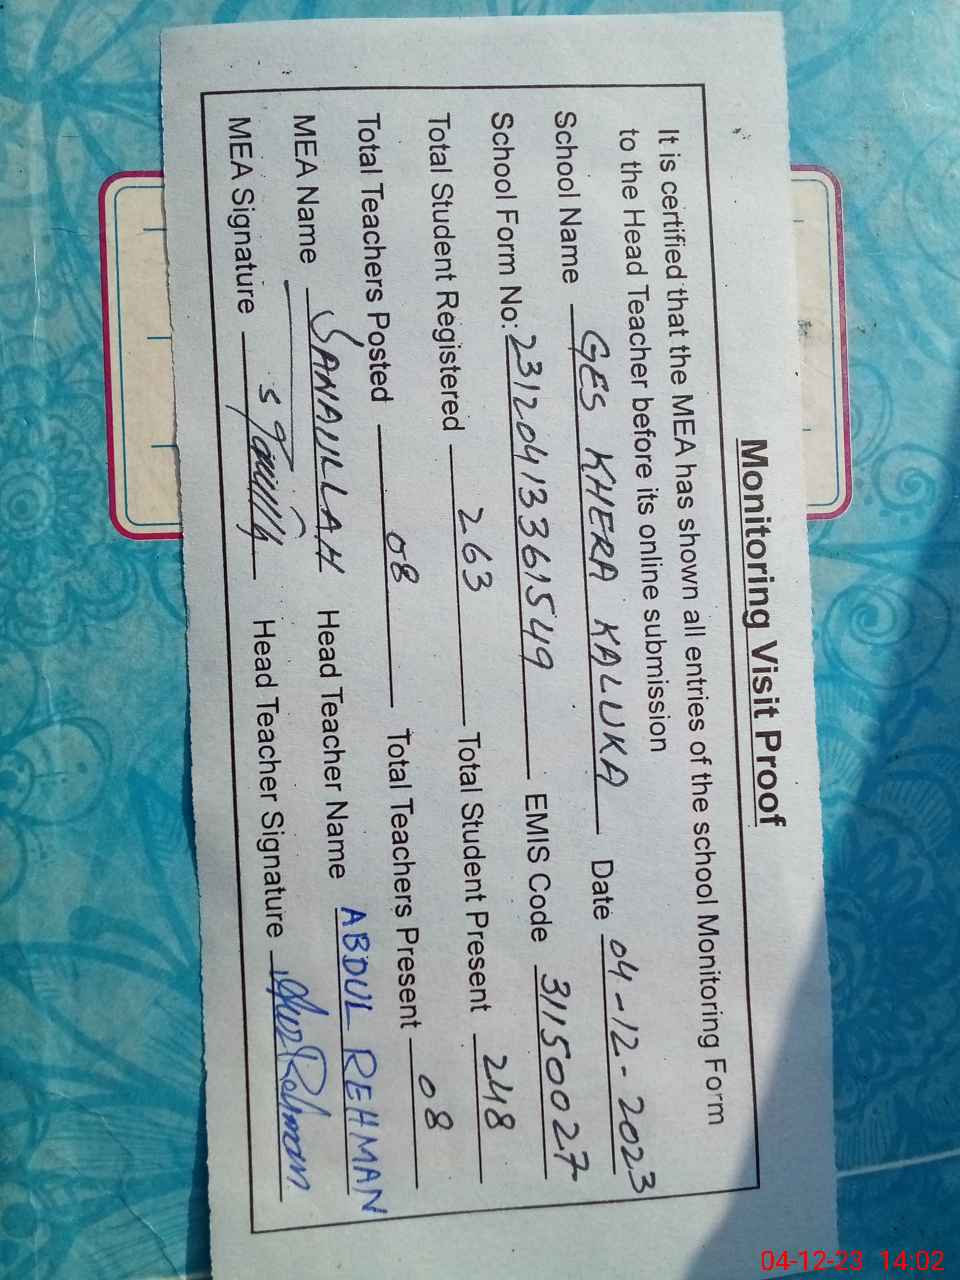 Monitoring Visit Proof
It is certified that the MEA has shown all entries of the school Monitoring Form
to the Head Teacher before its online submission
School Name GES KHERA KALUKA Date 04-12-2023
School Form No: 23120413361549 EMIS Code 31150027
Total Student Registered 263 Total Student Present 248
Total Teachers Posted 08 Total Teachers Present 08
MEA Name SANAULLAH Head Teacher Name ABDUL REHMAN
MEA Signature Head Teacher Signature
04-12-23 14:02